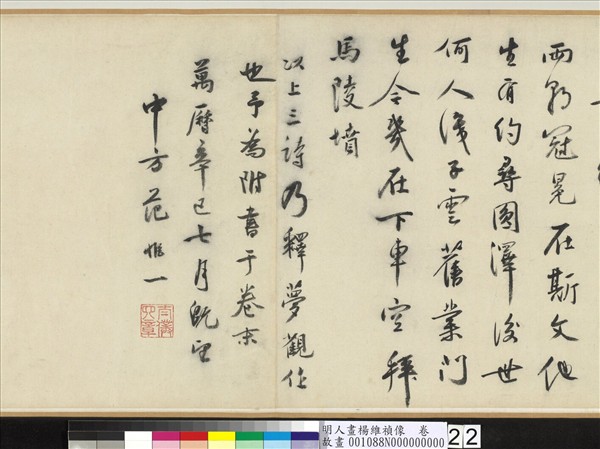 兩朝冠冕在斯文他
生有約尋圓澤後世
何人識子雲舊業門
生今幾在下車空拜
馬陵墳
以上三詩乃釋夢觀作
也予為附書于卷末
萬曆辛巳七月既望
中方范惟一
明人畫楊維禎像 卷
故畫 001088N000000000
22